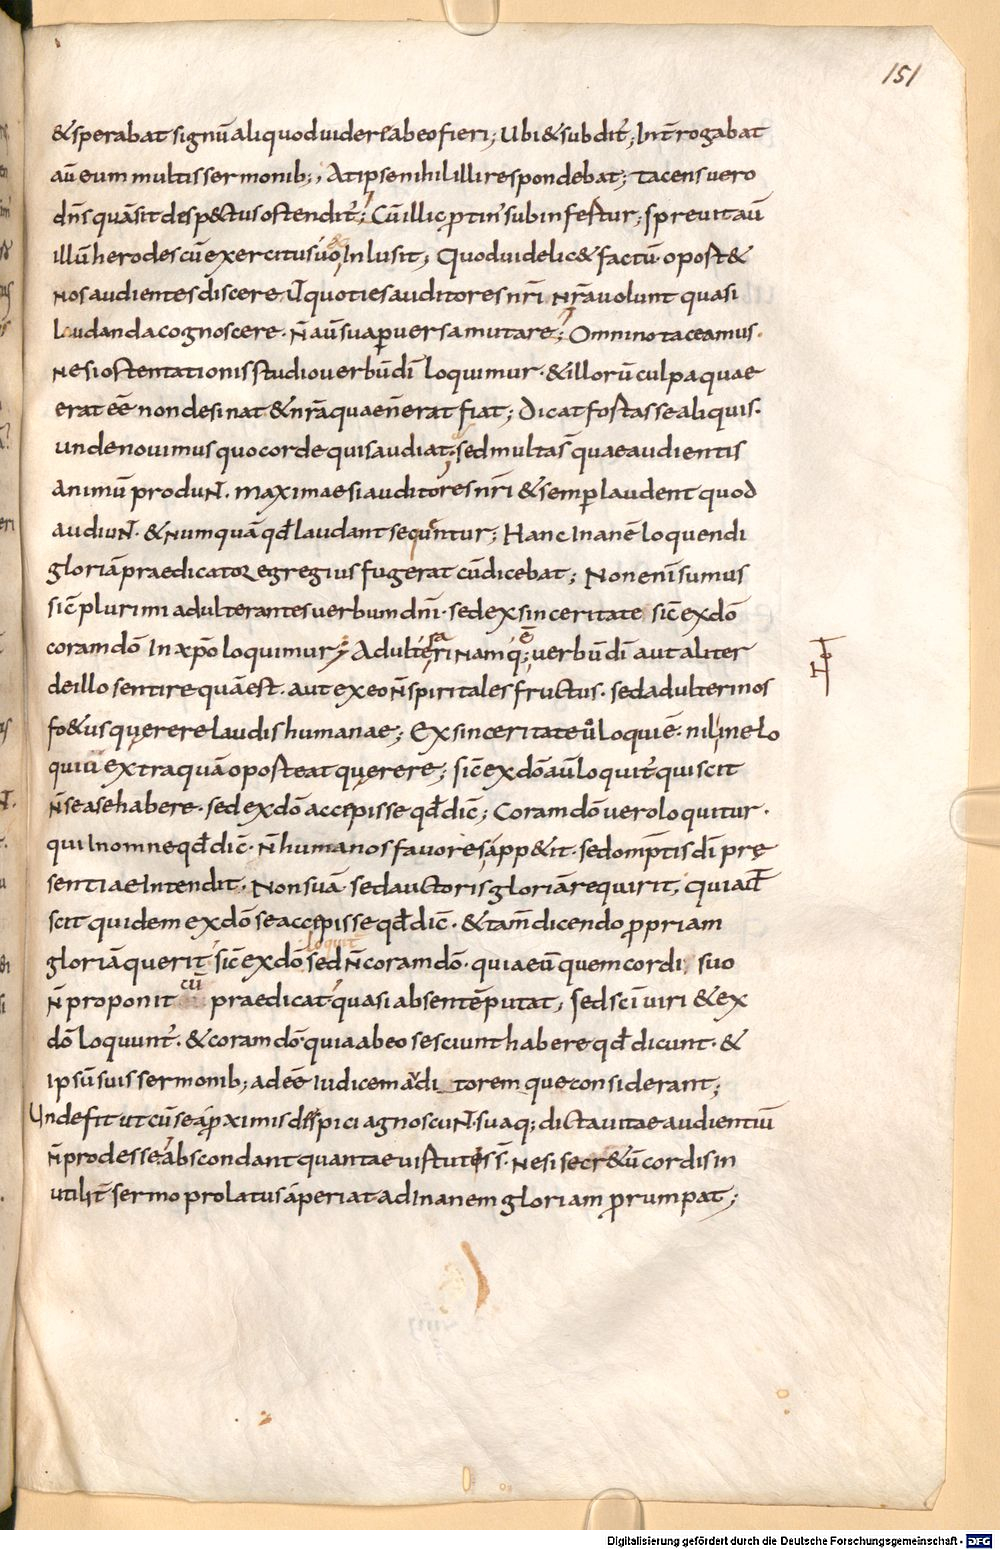 151
&sperabat signū aliquod videre abeo fieri; Ubi & subditr̄; Inter̄rogabat
aū eum multis sermonib;, At ipse nihil illi respondebat; tacens vero
dn̄s quāsit desp&ctus ostenditr̄; Cū illic ꝓtin̄ subinfertur; sprevit aū
illū herodes cū exercitu suo & Inlusit; Quod videlic& factū· oport&
Nos audientes discere· Ut quoties auditores nr̄i Nr̄a volunt quasi
laudanda cognoscere· N̄ aū sua perversa mutare; Omnino taceamus·
Ne si ostentationis studio verbū dī loquimur· & illorū culpa quae
erat eē non desinat & nr̄a quae n̄ erat fiat; Dicat fortasse aliquis·
unde novimus quo corde quis audiat· sed multa s̄ quae audientis
animū produNt· maximae si auditores nr̄i & semp laudent quod
audiuNt· & Numquā qđ laudant sequntur; Hanc Inanē loquendi
gloriā praedicator egregius fugerat cū dicebat; Non enī sumus
sic̄ plurimi adulterantes verbum dn̄i· sed ex sinceritate sic̄ ex dō
coram dō In xp̄o loquimur; Adulterari Namq; ē verbū dī aut aliter
de illo sentire quā est· aut ex eo n̄ spiritales fructus· sed adulterinos
fo&us querere laudis humanae; Ex sinceritate ū loqui ē· nil in elo
quiū extra quā oporteat querere; sic̄ ex dō aū loquitr̄ qui scit
n̄ se a se habere· sed ex dō accepisse qđ dic̄; Coram dō vero loquitur·
qui In omne qđ dic̄· n̄ humanos favores app&it· sed omp̄tis dī prę
sentiae Intendit· Non suā sed auctoris gloriā requirit; qui aū
scit quidem ex dō se accepisse qđ dic̄· & tam̄ dicendo propriam
gloriā querit sic̄ ex dō loquitr̄ sed n̄ coram dō· quia eū quem cordi suo
n̄ proponit cū praedicat quasi absentē putat; sed sc̄i viri & ex
dō loquunt̄· & coram dō· quia ab eo se sciunt habere qđ dicunt· &
Ipsū suis sermonib; adeē Iudicem auditorem que considerant;
Unde fit ut cū se a proximis despici agnoscuNt· suaq; dicta vitae audientiū
n̄ prodesse abscondant quantae virtutes s̄· Ne si secr&ū cordis in
utilit̄ sermo prolatus aperiat ad Inanem gloriam prorumpat;
Digitalisierung gefördert durch die Deutsche Forschungsgemeinschaft - DFG